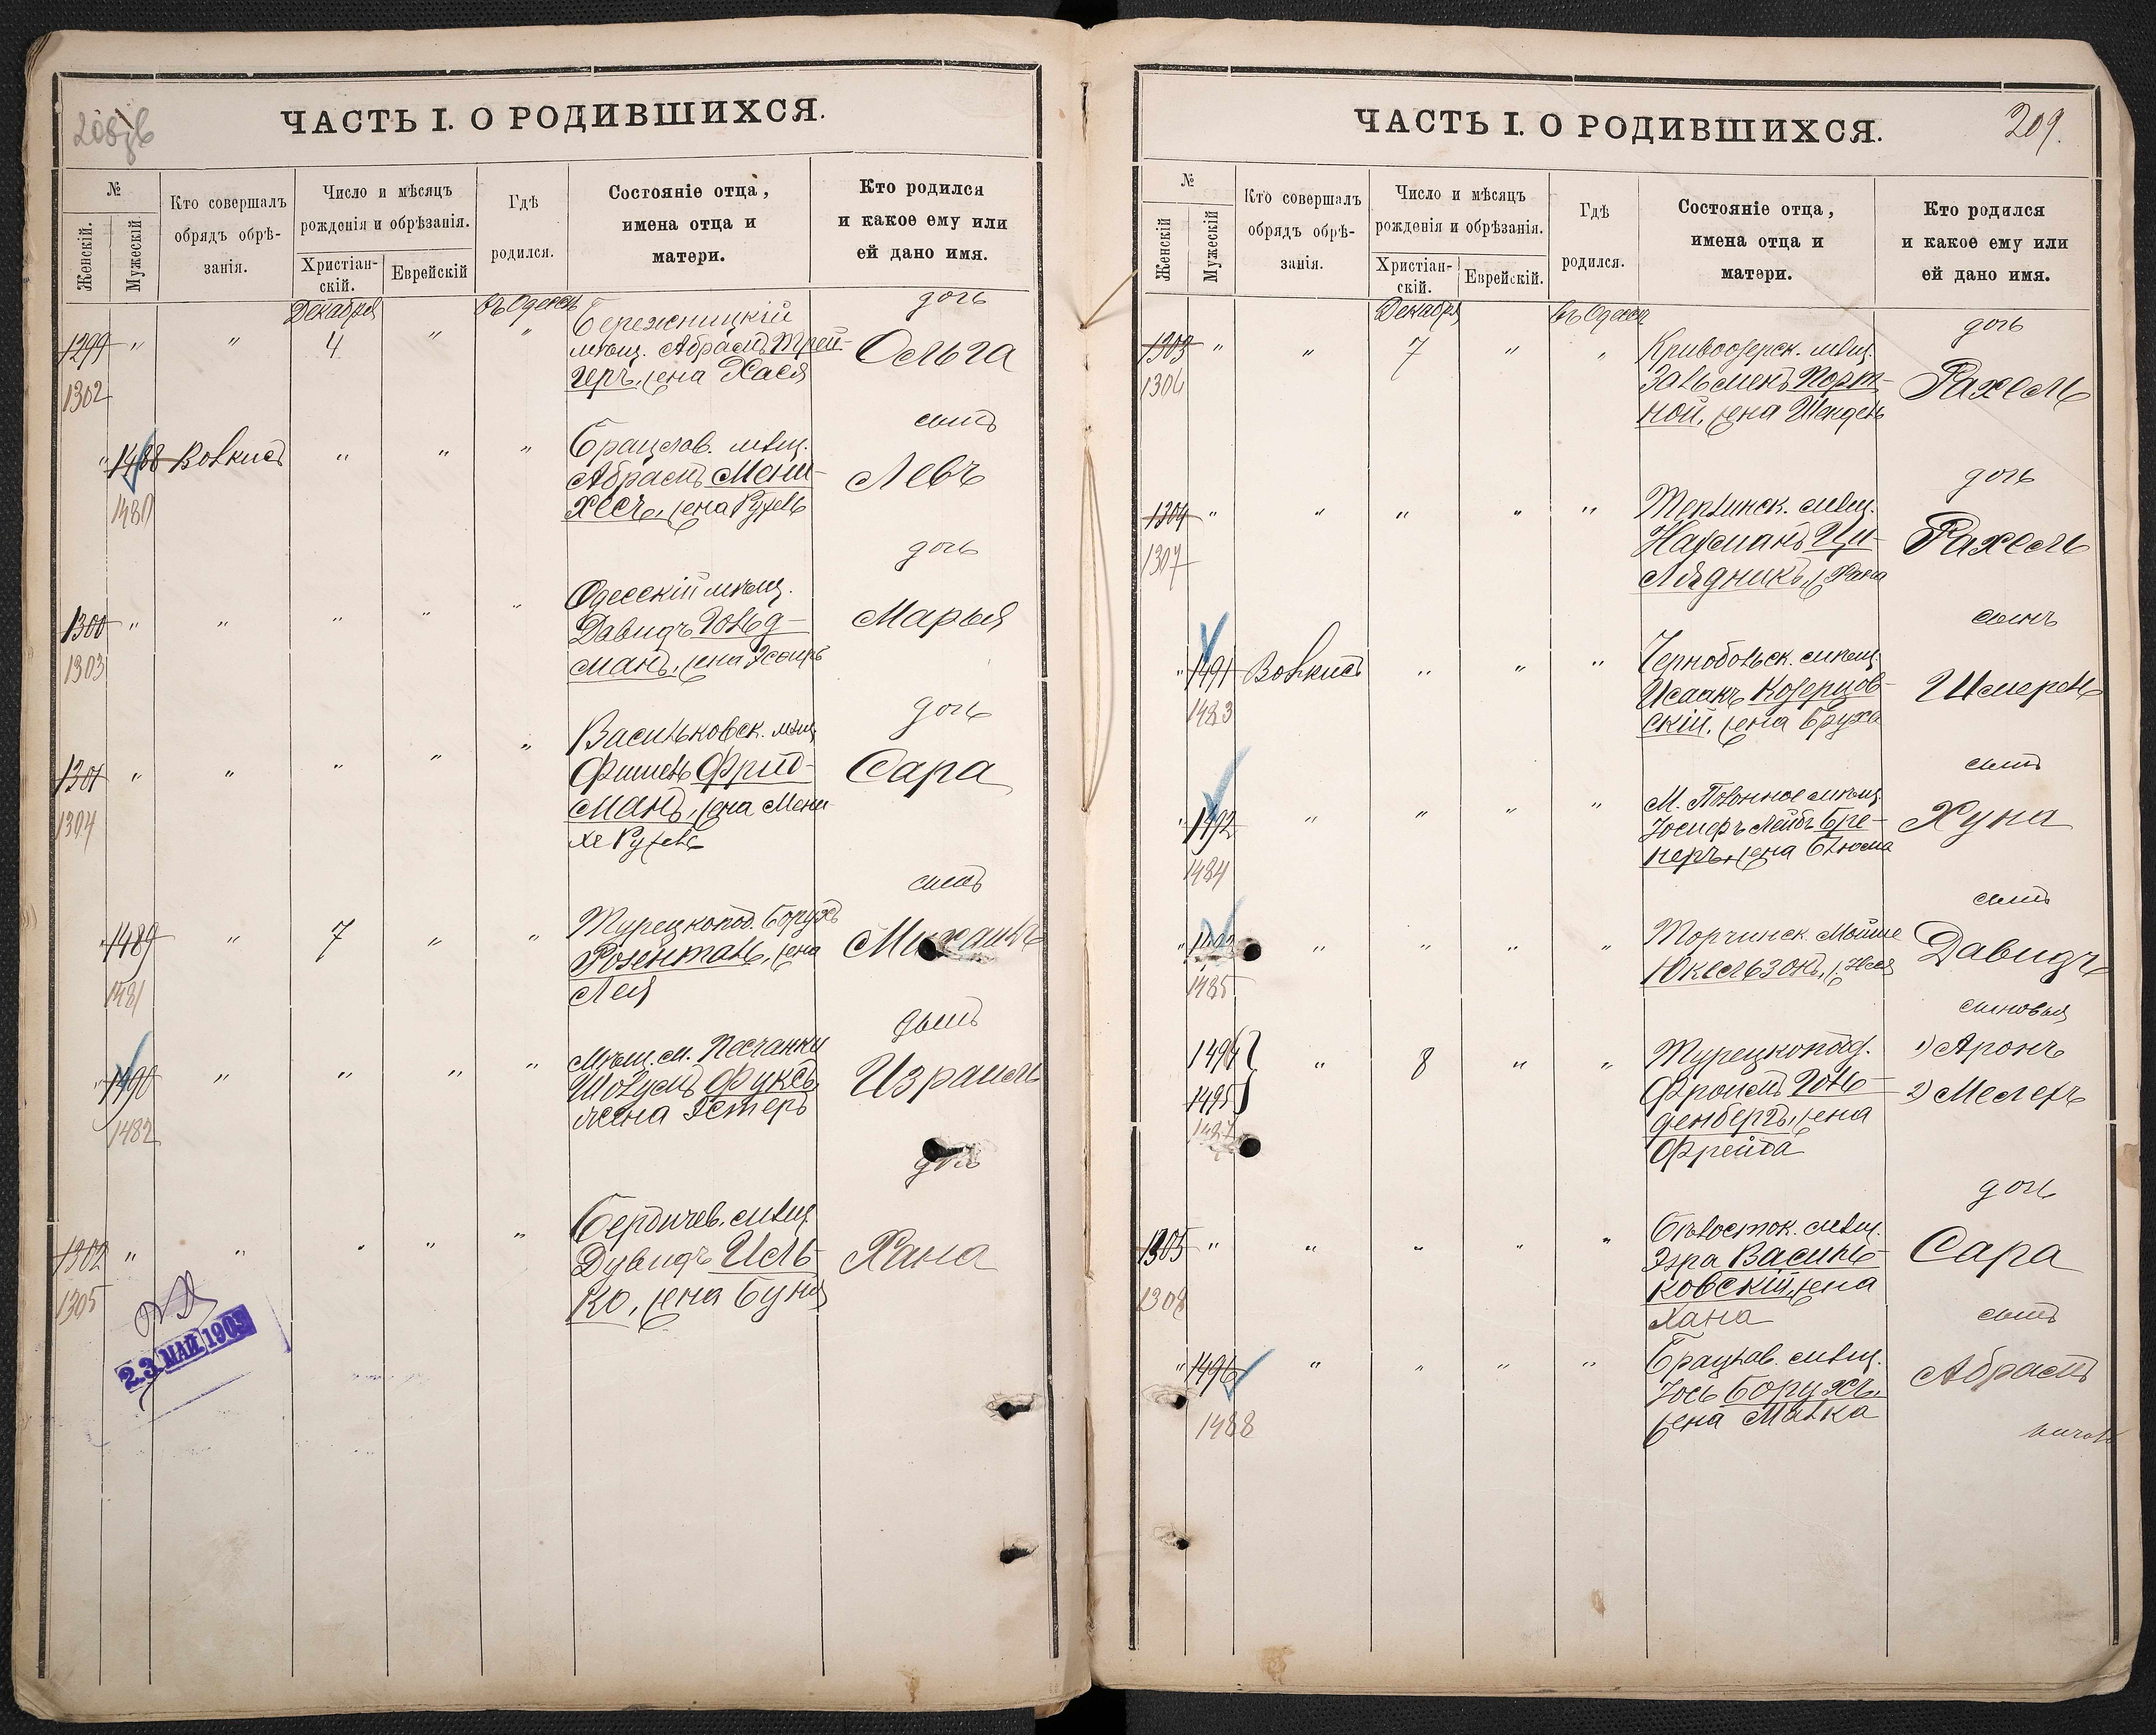 208 об
ЧАСТЬ I. О РОДИВШИХСЯ.
№
Женскій.
Мужескій
Кто совершалъ
обрядъ обрѣ-
занія.
Число и мѣсяцъ
рожденія и обрѣзанія.
Христіан-
скій.
Еврейскій
Гдѣ
родился.
Состояніе отца,
имена отца и
матери.
Кто родился
и какое ему или
ей дано имя.
Декабря
въ Одессѣ
1299 " " 4 " "
1302
Бережницкій
мѣщ. Абрамъ Трей-
геръ, жена Хася
дочь
Ольга
" 1488 Вовкисъ " " "
1480
Брацлав. мѣщ.
Абрамъ Мени-
хесъ, жена Рузель
сынъ
Левъ
1300 " " " " "
1303
Одесскій мѣщ.
Давидъ Гольд-
манъ, жена Эсфирь
дочь
Марья
1301 " " " " "
1304
Васильковск. мѣщ.
Фишель Фрид-
манъ, жена Мени-
хе Рузель
дочь
Сара
" 1489 " 7 " "
1481
Турецкопод. Борухъ
Розенталь, жена
Лея
сынъ
Михаилъ
" 1490 " " " "
1482
Мѣщ. м. Песчанки
Шолумъ Фуксъ,
жена Эстеръ
сынъ
Израиль
1302 " " " " "
1305
Бердичев. мѣщ.
Дувидъ Иль-
ко, жена Буня
дочь
Хана
23 МАЙ 1909
209.
ЧАСТЬ I. О РОДИВШИХСЯ.
№
Женскій
Мужескій
Кто совершалъ
обрядъ обрѣ-
занія.
Число и мѣсяцъ
рожденія и обрѣзанія.
Христіан-
скій.
Еврейскій.
Гдѣ
родился.
Состояніе отца,
имена отца и
матери.
Кто родился
и какое ему или
ей дано имя.
Декабря
въ Одессѣ
1303 " " 7 " "
1306
Кривоозерск. мѣщ.
Зальменъ Порт-
ной, жена Шендель
дочь
Рахель
1304 " " " " "
1307
мѣщ.
Нахманъ Ци-
лядникъ, ж. Хана
дочь
Рахель
" 1491 Вовкисъ " " "
1483
Чернобольск. мѣщ.
Исаакъ Козерцов-
скій, жена Бруха
сынъ
Шмерель
" 1492 " " " "
1484
М. Полонное мѣщ.
Іосифъ Лейбъ Бре-
неръ, жена Блюма
сынъ
Хуна
" 1493 " " " "
1485
Торчинск. Мойше
Юкельзонъ, ж. Нехя
сынъ
Давидъ
1494 " 8 " "
1495
1487
Турецкопод.
Фроимъ Голь-
денбергъ, жена
Фрейда
сыновья
1) Аронъ
2) Мелехъ
1305 " " " " "
1308
Бѣлосток. мѣщ.
Эзра Василь-
ковскій, жена
Хана
дочь
Сара
" 1496 " " " "
1488
Брацлав. мѣщ.
Іось Борухъ,
жена Малка
сынъ
Абрамъ